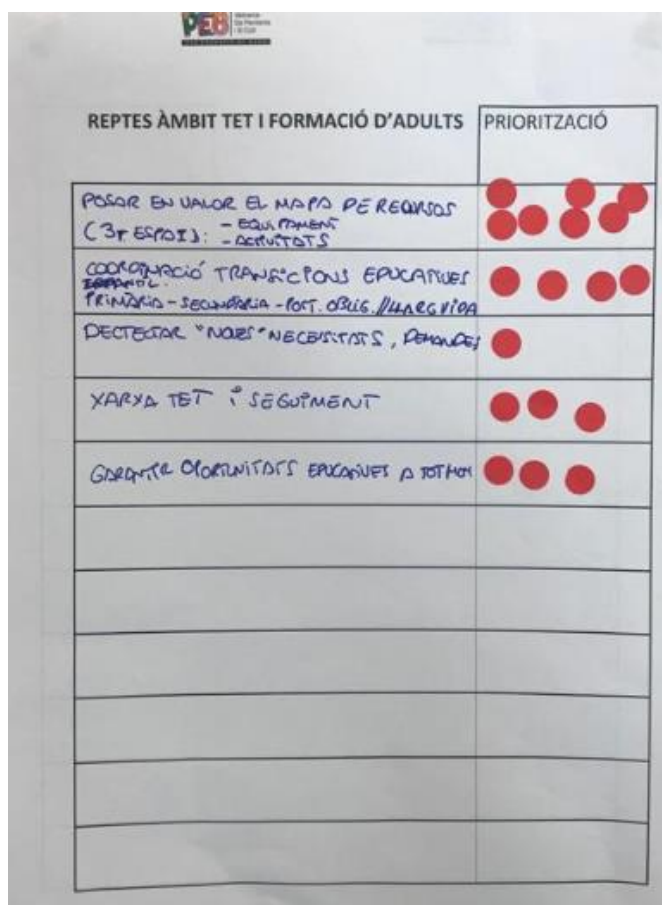 PEB
REPTES ÀMBIT TET I FORMACIÓ D'ADULTS
PRIORITZACIÓ
POSAR EN VALOR EL MAPA DE RECURSOS
(3r ESPAI): - EQUIPAMENT
- ACTIVITATS
COORDINACIÓ TRANSICIONS EDUCATIVES
INFANTIL
PRIMÀRIA - SECUNDÀRIA - POST. OBLIG. // LLARG VIDA
DECTECTAR "NOVES" NECESSITATS, DEMANDES
XARXA TET i SEGUIMENT
GARANTIR OPORTUNITATS EDUCATIVES A TOTHOM